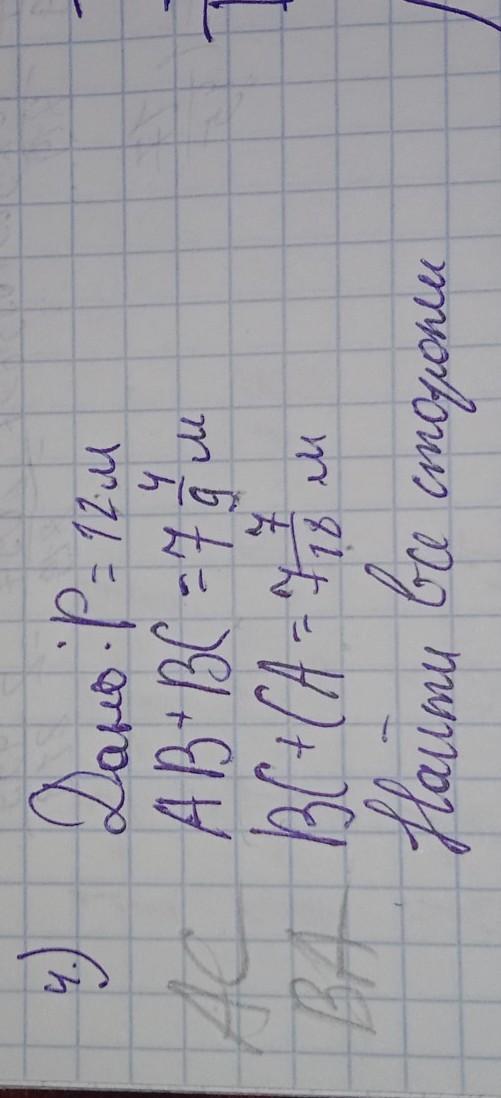 4.) Дано: P = 12 м
AC AB + BC = 7 4/9 м
BA BC + CA = 7 7/18 м
Найти все стороны